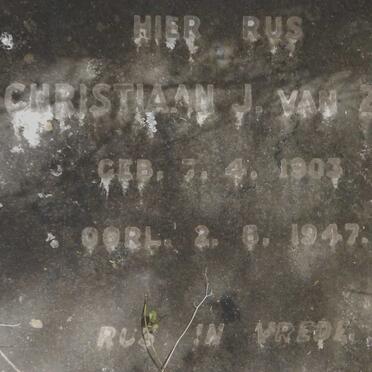 HIER RUS
CHRISTIAAN J. VAN
GEB. 7. 4. 1903
OORL. 2. 6. 1947.
RUS IN VREDE.